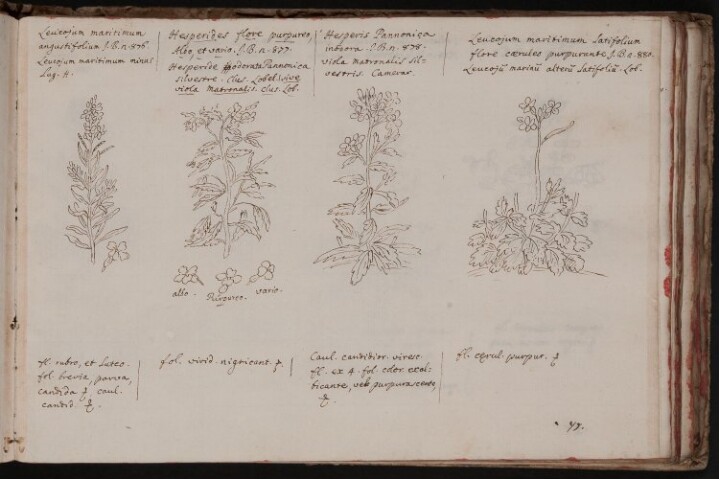 Leucojum maritimum
angustifolium J.B.n.876.
Leucojum maritimum minus
Lug. H.
Hesperides flore purpureo,
Albo, et vario. J.B.n.877.
Hesperide odorata Pannonica
silvestre. Clus. Lobel. sive
viola matronalis. Clus. Lob.
Hesperis Pannonica
inodora. J.B.n.878.
viola matronalis sil-
vestris Camerar.
Leucojum maritimum Latifolium
flore cæruleo purpurante J.B.n.880.
Leucojũ marinũ alterũ Latifoliũ. Lob.
albo.
Purpureo.
vario.
fl. rubro, et Luteo.
fol. brevia, parva,
candida caul.
candid.
fol. virid. nigricant.
Caul. candidior. viresc.
fl. ex 4. fol.
ticante, vel purpurascente
fl. cærul. purpur.